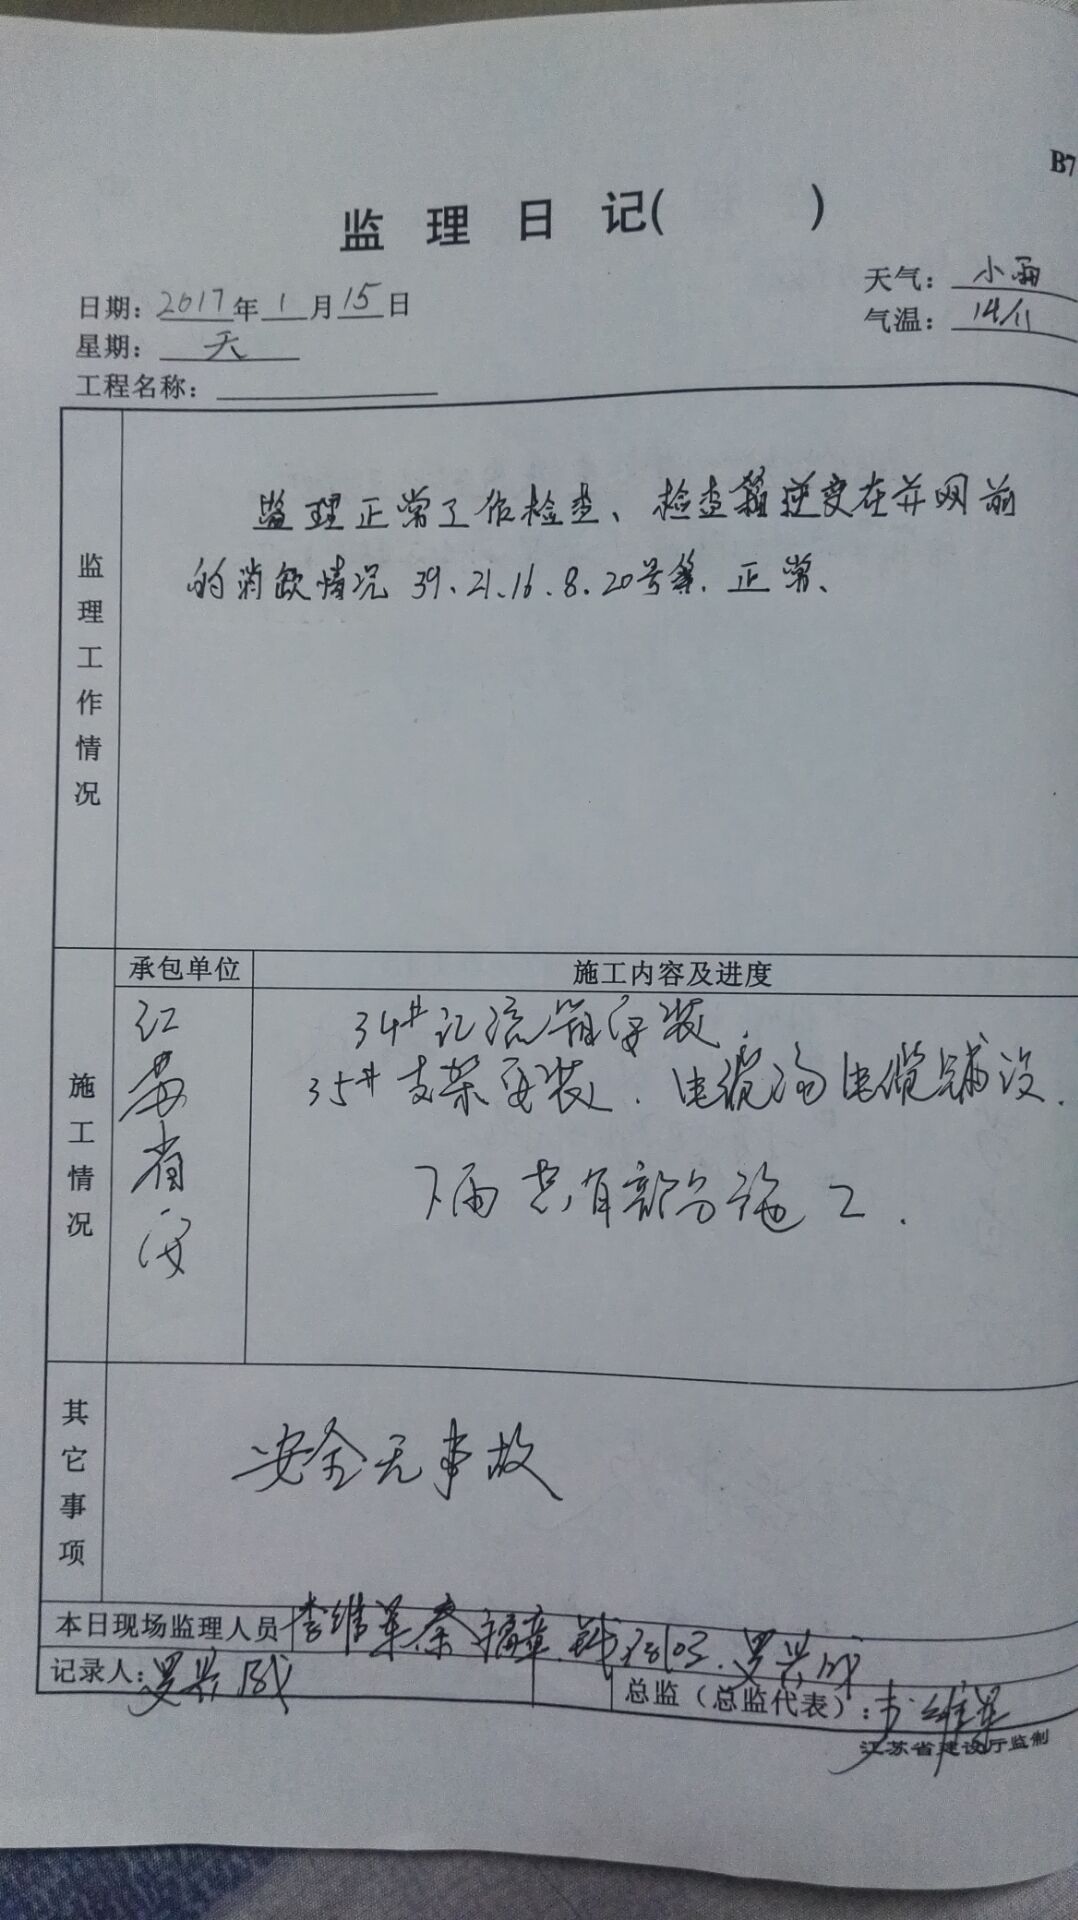 B7
监理日记(      )
日期: 2017年 1月15日
天气: 小雨
星期: 天
气温: 14/11
工程名称:
监理工作情况
监理正常工作检查、检查箱逆变在并网前
的消缺情况 39、21、16、8、20号等. 正常、
施工情况
承包单位
施工内容及进度
江苏省安
34# 汇流箱安装
35# 支架安装. 电缆沟电缆铺设.
下雨只有部分施工.
其它事项
安全无事故
本日现场监理人员 李维军、秦福章、
记录人:
总监（总监代表）: 李维军
江苏省建设厅监制